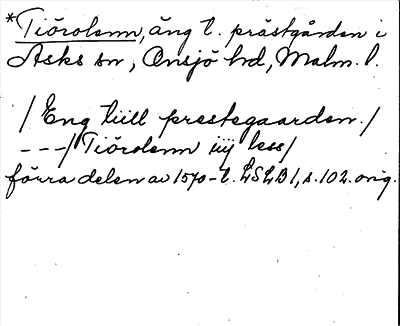 *Tiörolenn, äng t. prästgården i
Asks sn, Onsjö hd, Malm. l.
/Eng till prestegaarden./
---/Tiörolenn iiij less/
förra delen av 1570-t. LSLB1, s. 102. orig.